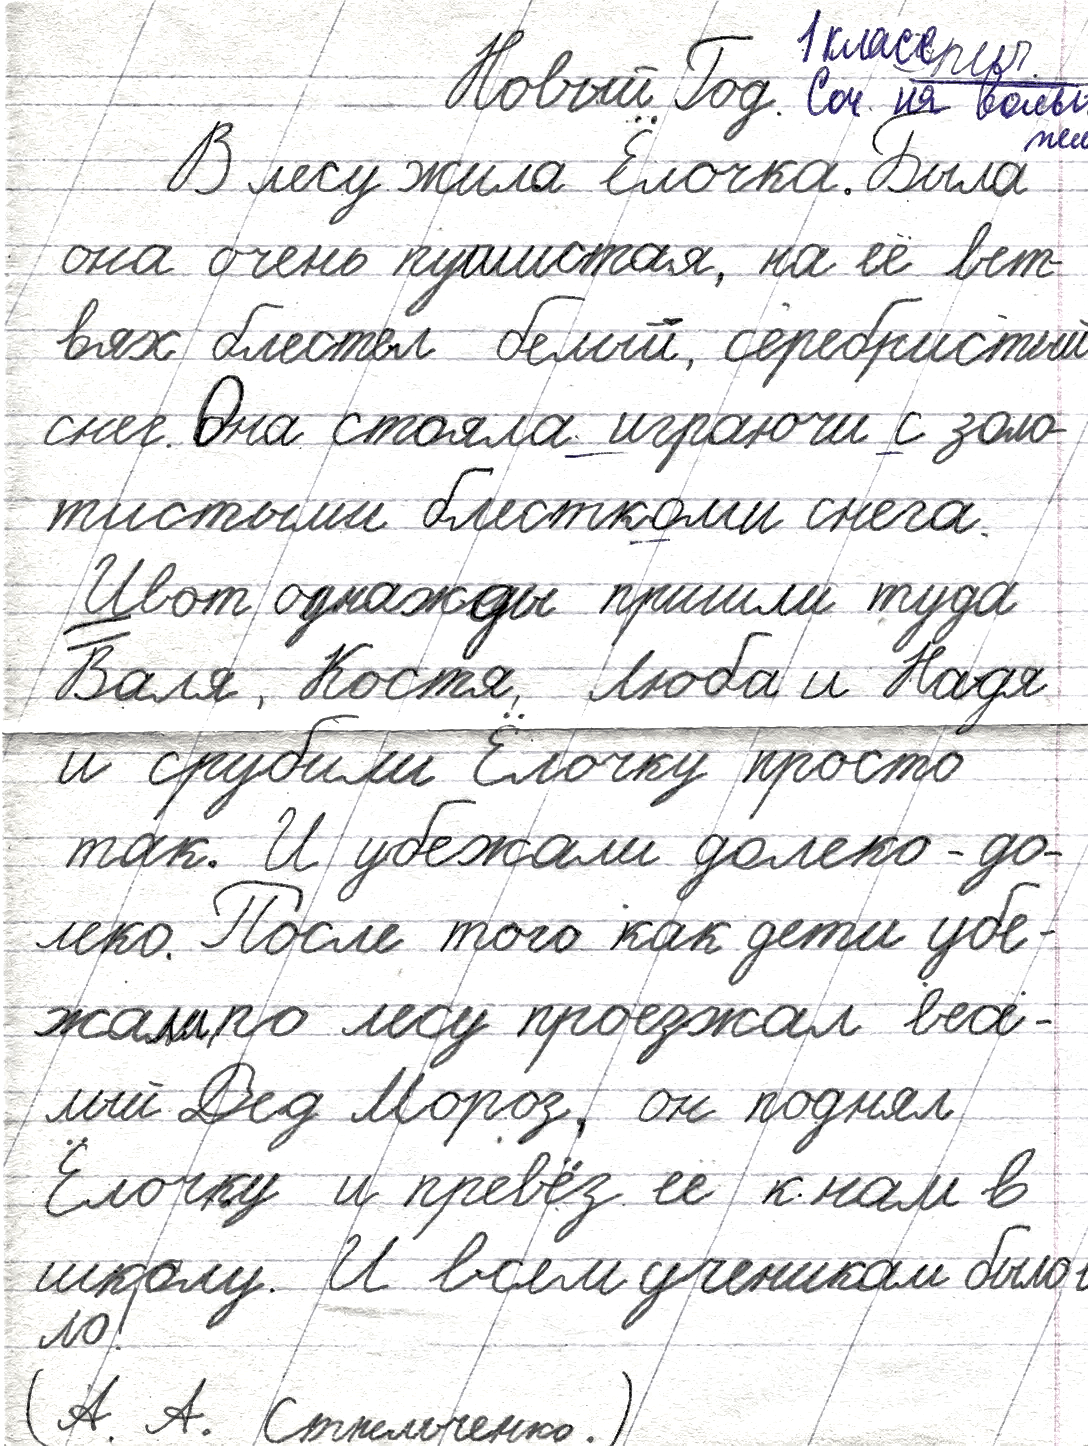 1 класс
Новый Год. Соч. на
В лесу жила Ёлочка. Была
она очень пушистая, на её вет-
вях блестел белый, серебристый
снег. Она стояла играючи с золо-
тистыми блестками снега.
И вот однажды пришли туда
Валя, Костя, Люба и Надя
и срубили Ёлочку просто
так. И убежали далеко-да-
леко. После того как дети убе-
жали, по лесу проезжал
Дед Мороз, он поднял
Ёлочку и превёз её к нам в
школу. И всем ученикам было
ло!
(А. А.